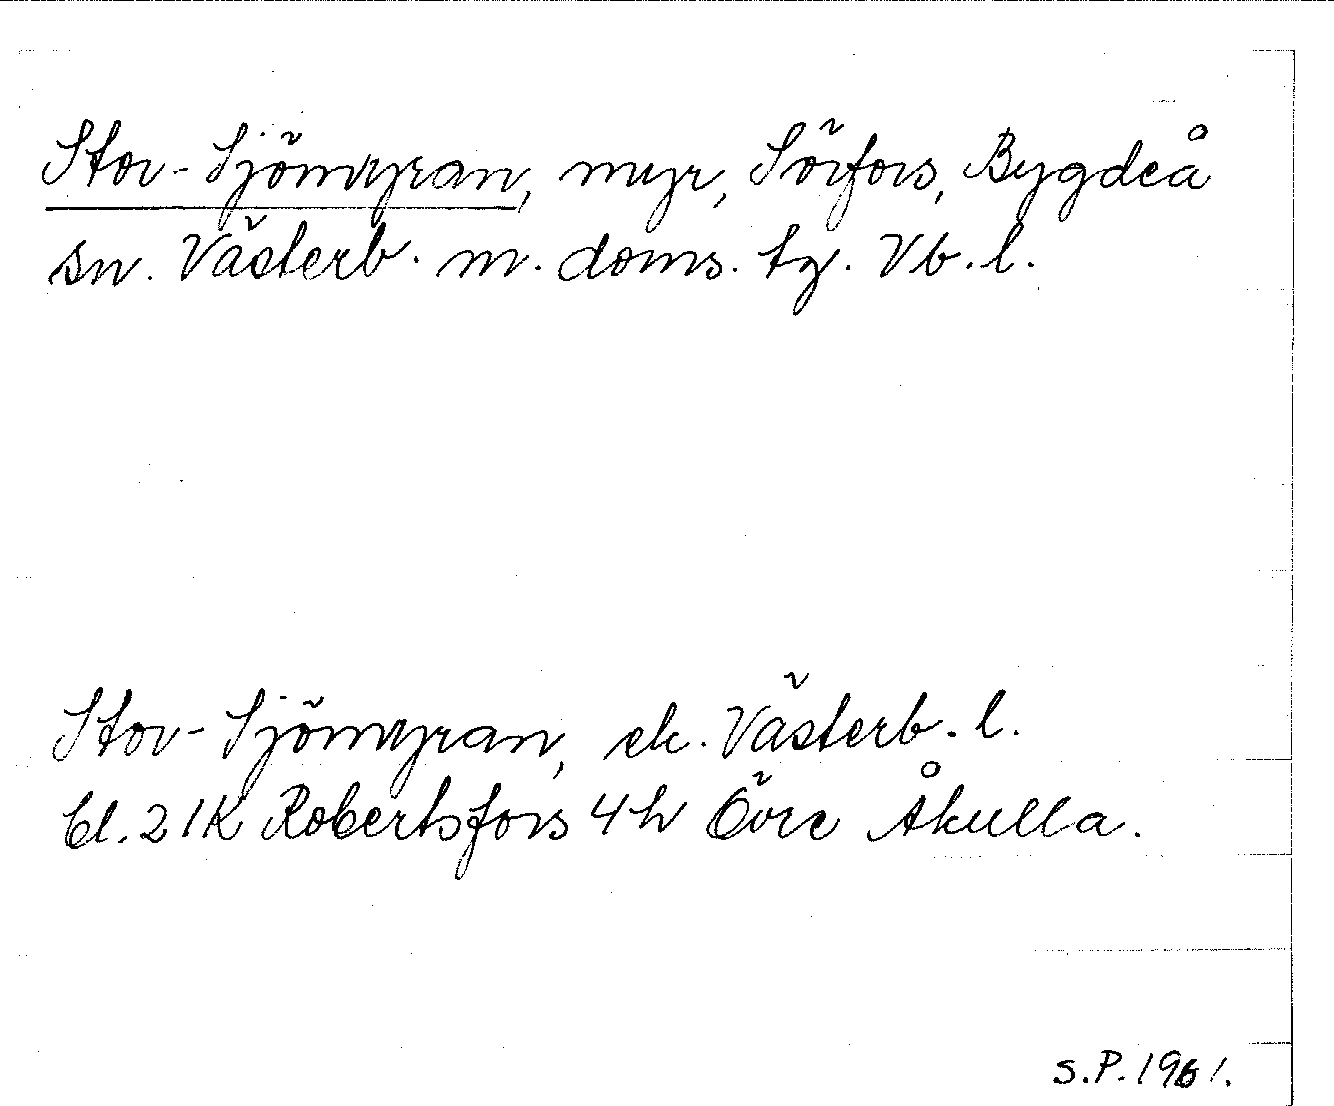 Stor-Sjömyran, myr, Sörfors, Bygdeå
sn. Västerb. m. doms. tg. Vb. l.
Stor-Sjömyran, ek. Västerb. l.
bl. 21K Robertsfors 4h Övre Åkulla.
S.P. 1961.